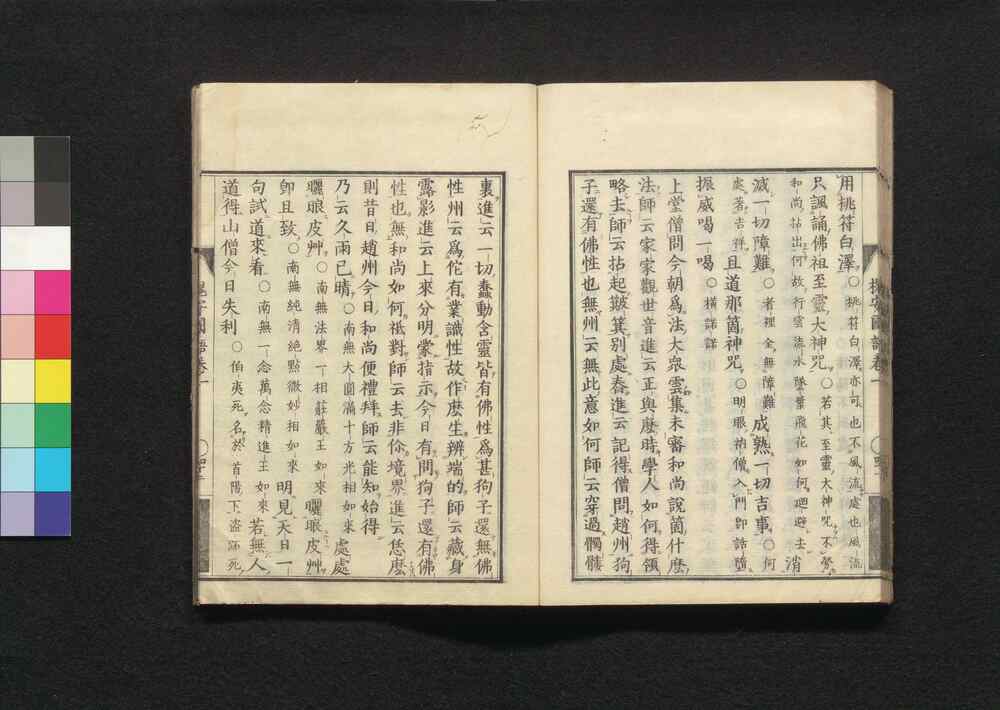 用桃符白澤〇桃符白澤亦可也不風流處也風流
只諷誦佛祖至靈大神咒〇若其至靈大神咒不
和尚拈出何故行雲流水墜葉飛花如何廻避去消
滅一切障難〇者裡全無障難成熟一切吉事〇何
處著吉祥且道那箇神咒〇明眼衲僧入門即話墮
振威喝一喝〇橫
上堂僧問今朝爲法大衆雲集未審和尚說箇什麽
法師云家家觀世音進云正與麽時學人如何得領
略去師云拈起簸箕別處舂進云記得僧問趙州狗
子還有佛性也無州云無此意如何師云穿過髑髏
槐安國語卷一
裏進云一切蠢動含靈皆有佛性爲甚狗子還無佛
性州云爲佗有業識性故作麽生辨端的師云藏身
露影進云上來分明蒙指示今日有問狗子還有佛
性也無和尚如何祗對師云去非你境界進云恁麽
則昔日趙州今日和尚便禮拜師云能知始得
乃云久雨已晴〇南無大圓滿十方光相如來處處
曬眼皮艸〇南無法界一相莊嚴王如來曬眼皮艸
卽且致〇南無純清絶點微妙相如來明見天日一
句試道來看〇南無一念萬念精進王如來若無人
道得山僧今日失利〇伯夷死名於首陽下盜跖死
槐安國語卷一